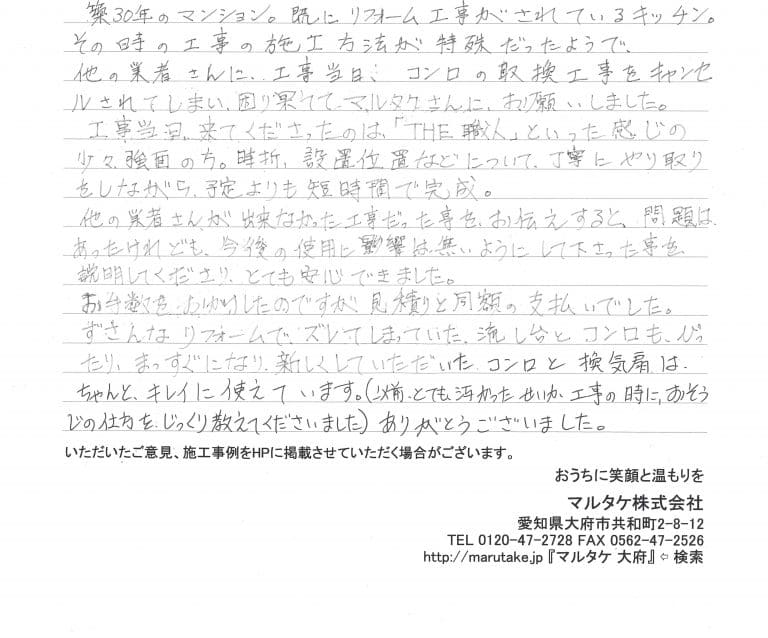 築30年のマンション。既にリフォーム工事がされているキッチン。
その時の工事の施工方法が特殊だったようで、
他の業者さんに、工事当日、コンロの取換工事をキャンセ
ルされてしまい、困り果てて、マルタケさんに、お願いしました。
工事当日、来てくださったのは、「THE 職人」といった感じの
少々強面の方。時折、設置位置などについて、丁寧にやり取り
をしながら、予定よりも短時間で完成。
他の業者さんが出来なかった工事だった事を、お伝えすると、問題は
あったけれども、今後の使用に影響は無いようにして下さった事を
説明してくださり、とても安心できました。
お手数をおかけしたのですが見積りと同額の支払いでした。
ずさんなリフォームで、ズレてしまっていた、流し台とコンロも、ぴっ
たり、まっすぐになり、新しくしていただいたコンロと換気扇は、
ちゃんと、キレイに使えています。(以前、とても汚かったせいか、工事の時に、おそう
じの仕方を、じっくり教えてくださいました)ありがとうございました。
いただいたご意見、施工事例をHPに掲載させていただく場合がございます。
おうちに笑顔と温もりを
マルタケ株式会社
愛知県大府市共和町2-8-12
TEL 0120-47-2728 FAX 0562-47-2526
http://marutake.jp『マルタケ 大府』⇦検索